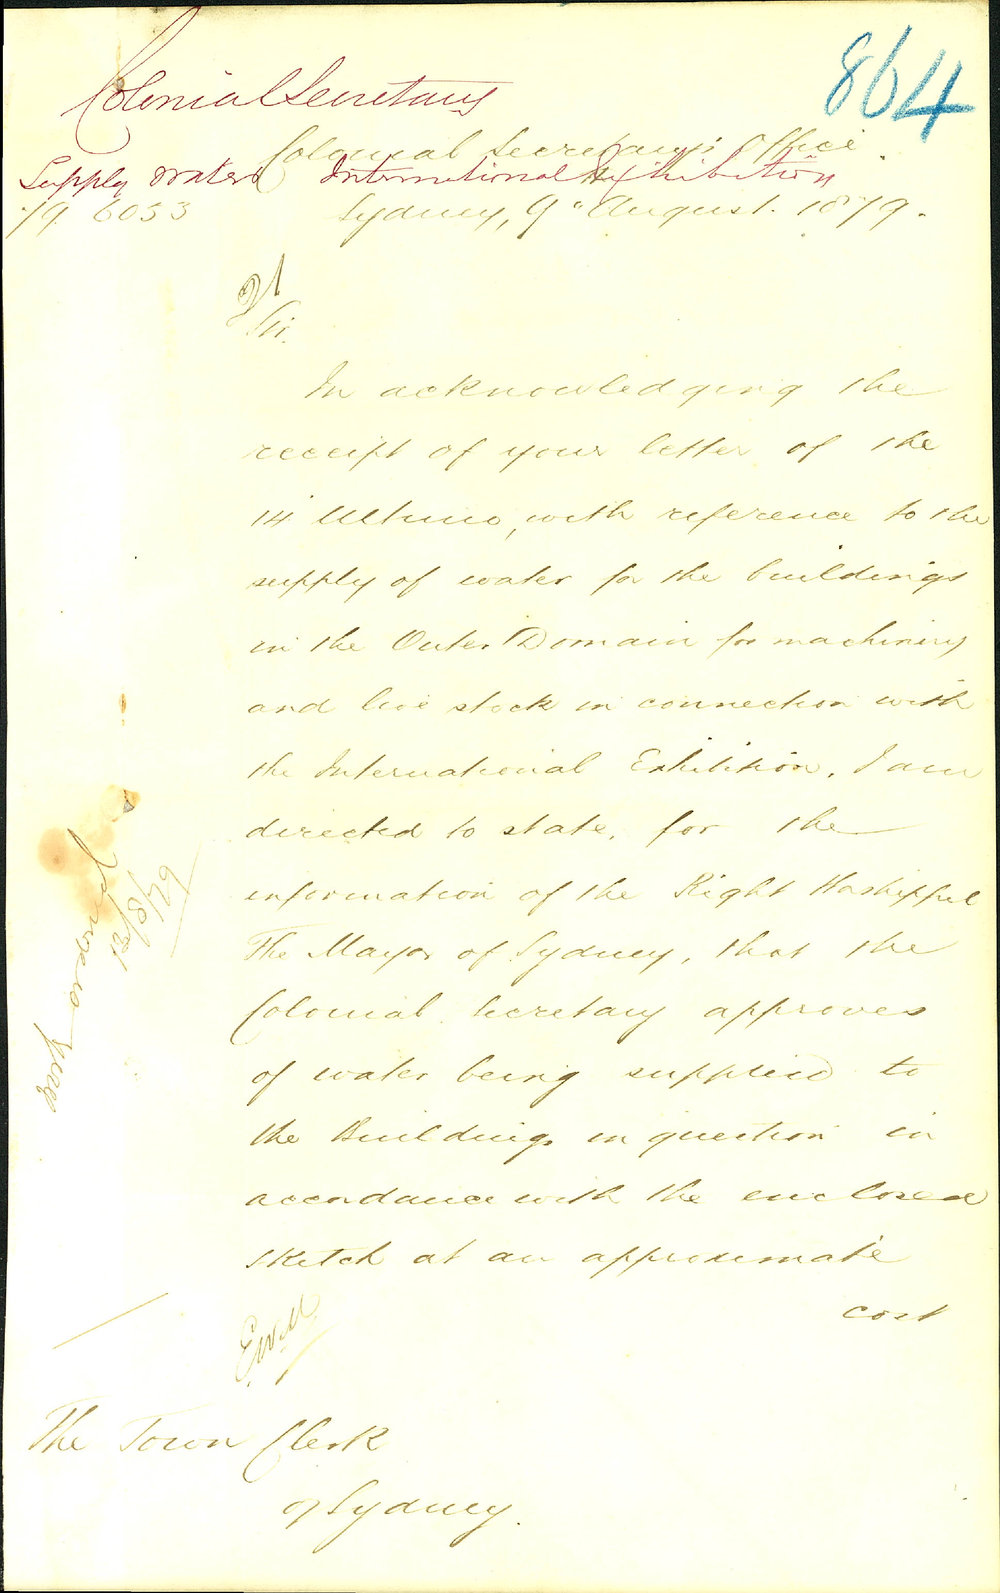 864
Colonial Secretary
Colonial Secretary's Office
Supply Water International Exhibition
79 6053
Sydney, 9" August. 1879.
Sir.
In acknowledging the
receipt of your letter of the
14" Ultimo, with reference to the
supply of water for the buildings
in the Outer Domain for machinery
and live stock in connection with
the International Exhibition, I am
directed to state, for the
information of the Right Worshipful
The Mayor of Sydney, that the
Colonial Secretary approves
of water being supplied to
the Buildings in question in
accordance with the enclosed
sketch at an approximate
cost
The Town Clerk
of Sydney.
13/8/79